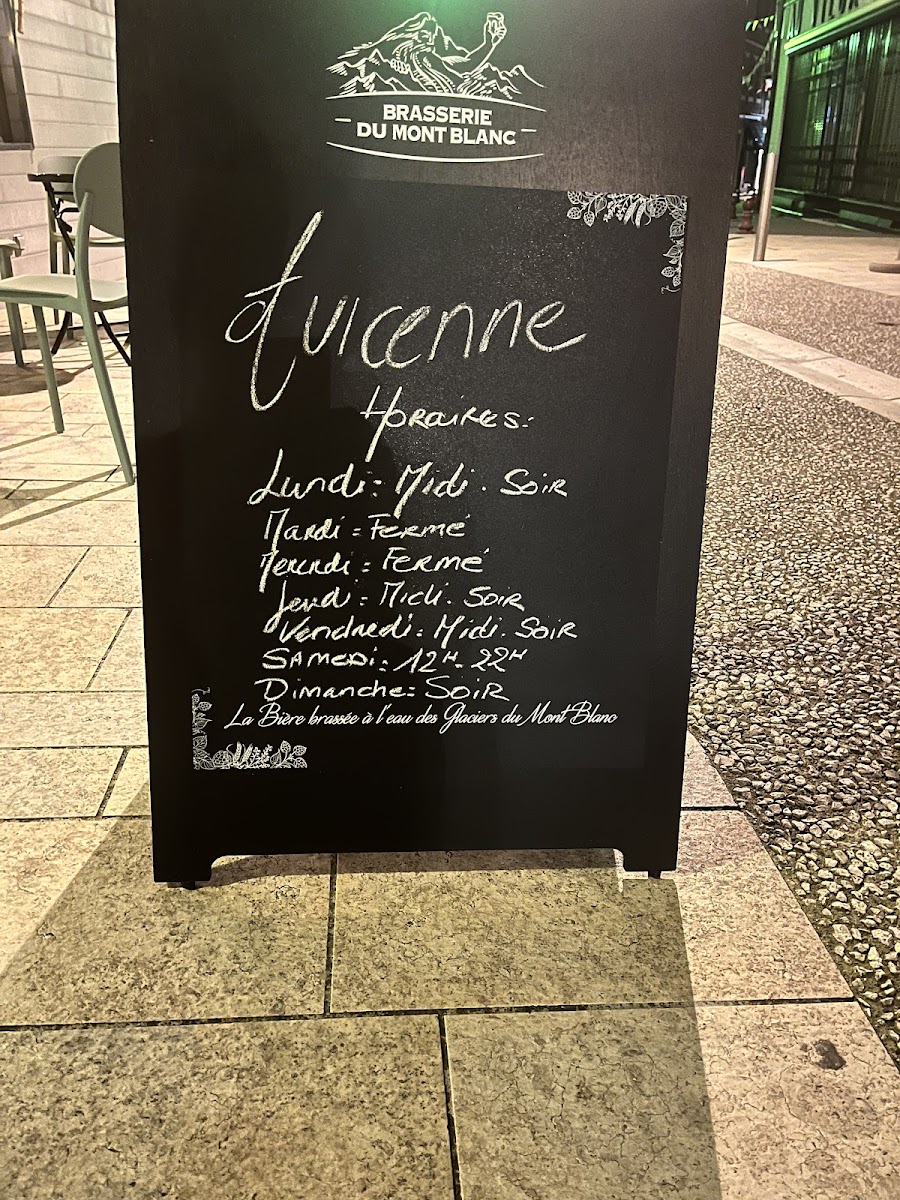 BRASSERIE
DU MONT BLANC
Avicenne
HORAIRES:
Lundi: Midi. SOIR
Mardi = FERMÉ
Mercredi = FERMÉ
Jeudi = Midi. SOIR
Vendredi = Midi. SOIR
SAMEDi = 12H-22H
Dimanche = SOIR
La Bière brassée à l'eau des Glaciers du Mont Blanc